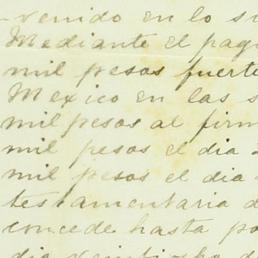 -venido en lo si
Mediante el pag
mil pesos fuerte
Mexico en las s
mil pesos al firm
mil pesos el dia
mil pesos el dia
testamentaria d
concede hasta po
dia veintiocho d